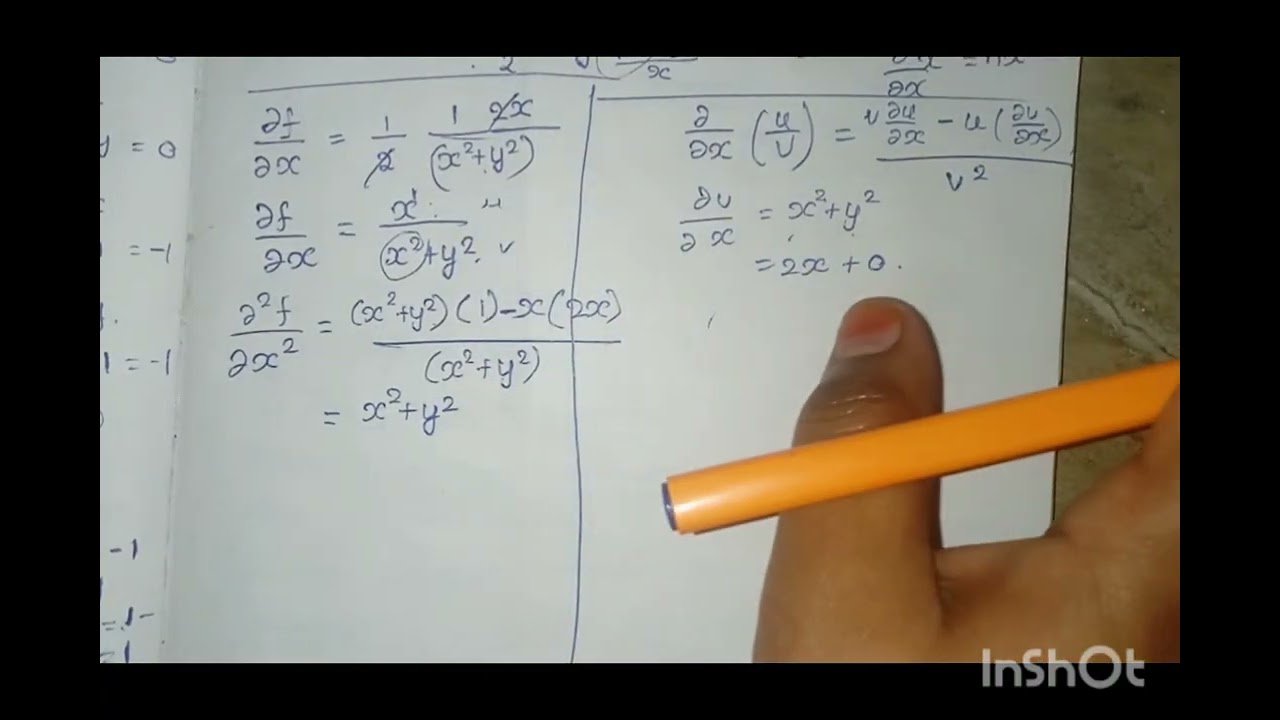 y = 0
= -1
1 = -1
-1
= 1-
= 1
2
x
∂x
∂f/∂x = 1/2 1 2x/(x²+y²)
∂f/∂x = x/x²+y² u v
∂²f/∂x² = (x²+y²)(1)-x(2x)/(x²+y²)
= x²+y²
∂/∂x (u/v) = v ∂u/∂x - u (∂v/∂x)/v²
∂v/∂x = x²+y²
= 2x + 0.
InShOt